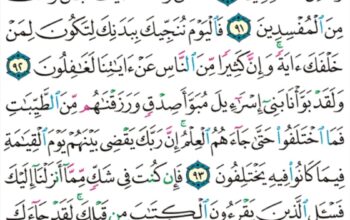 مِنَ ٱلْمُفْسِدِينَ ٩١ فَٱلْيَوْمَ نُنَجِّيكَ بِبَدَنِكَ لِتَكُونَ لِمَنْ
خَلْفَكَ ءَايَةً ۚ وَإِنَّ كَثِيرًا مِّنَ ٱلنَّاسِ عَنْ ءَايَٰتِنَا لَغَٰفِلُونَ ٩٢
وَلَقَدْ بَوَّأْنَا بَنِىٓ إِسْرَٰٓءِيلَ مُبَوَّأَ صِدْقٍ وَرَزَقْنَٰهُم مِّنَ ٱلطَّيِّبَٰتِ
فَمَا ٱخْتَلَفُوا۟ حَتَّىٰ جَآءَهُمُ ٱلْعِلْمُ ۚ إِنَّ رَبَّكَ يَقْضِى بَيْنَهُمْ يَوْمَ ٱلْقِيَٰمَةِ
فِيمَا كَانُوا۟ فِيهِ يَخْتَلِفُونَ ٩٣ فَإِن كُنتَ فِى شَكٍّ مِّمَّآ أَنزَلْنَآ إِلَيْكَ
فَسْـَٔلِ ٱلَّذِينَ يَقْرَءُونَ ٱلْكِتَٰبَ مِن قَبْلِكَ ۚ لَقَدْ جَآءَكَ